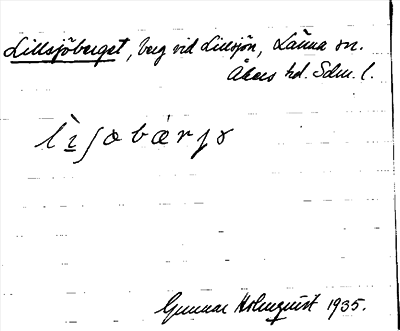 Lillsjöberget, berg vid Lillsjön, Länna sn.
Åkers hd. Sdm. l.
lìʃɷbárjɷ
Gunnar Holmquist 1935.